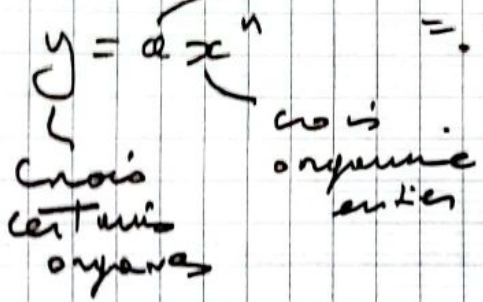 y = a x^n =.
crois
organisme
entier
crois
certains
organes